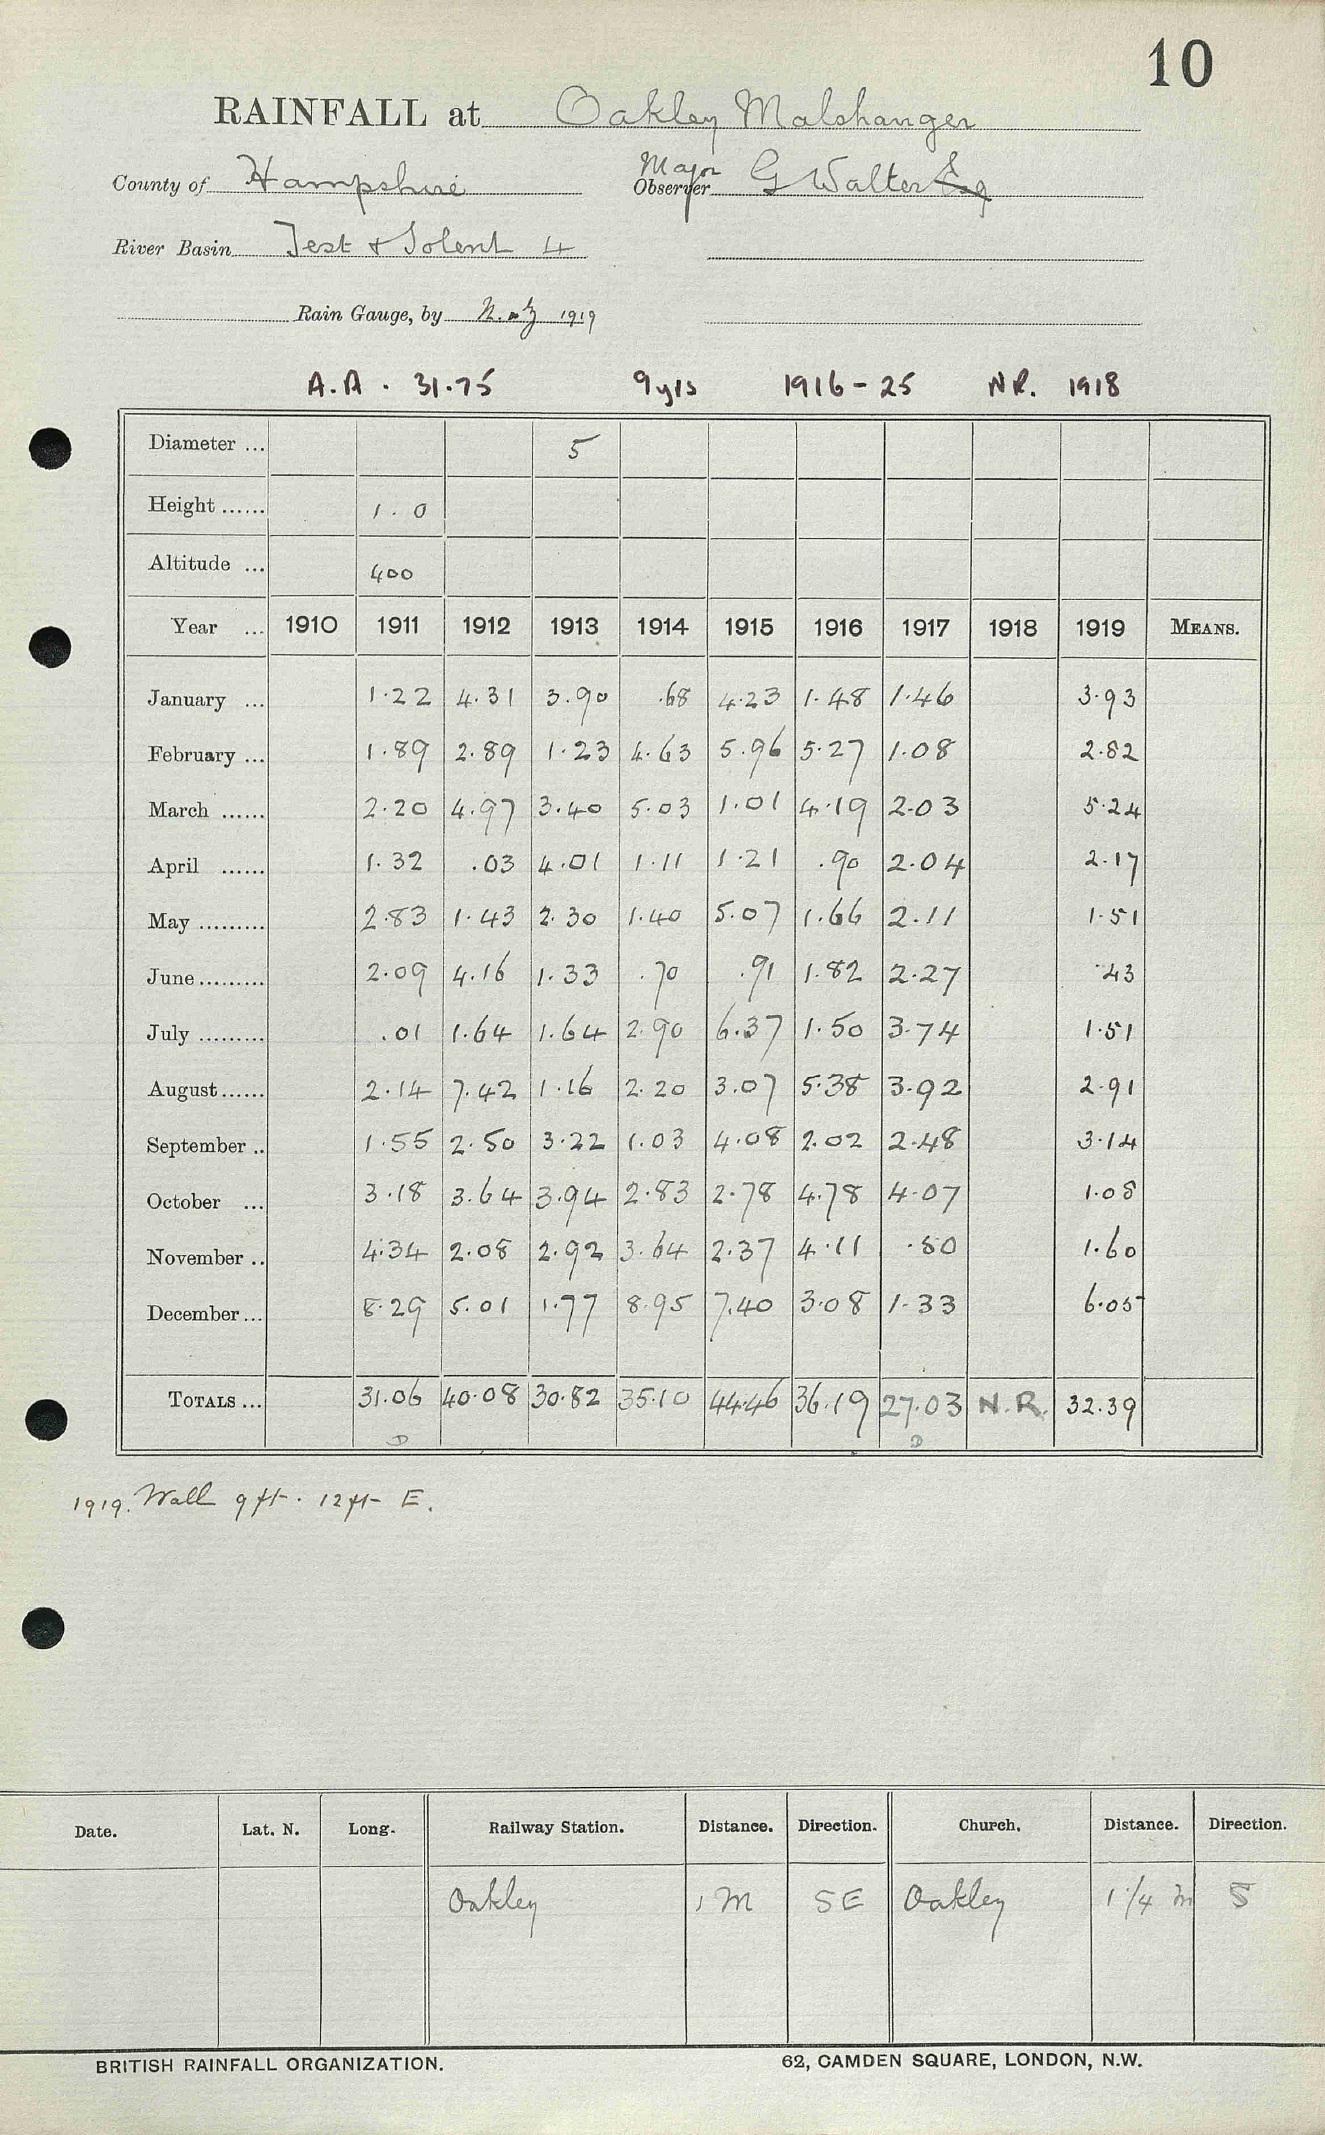 10
RAINFALL at Oakley Malshanger
County of Hampshire Major Observer G Walter Esq
River Basin Test + Solent 4
Rain Gauge, by N. & Z 1919
A.A. 31.75 9 yrs 1916-25 N.R. 1918
Diameter ... 5
Height ...... 1.0
Altitude ... 400
Year ... 1910 1911 1912 1913 1914 1915 1916 1917 1918 1919 MEANS.
January ... 1.22 4.31 3.90 .68 4.23 1.48 1.46 3.93
February ... 1.89 2.89 1.23 4.63 5.96 5.27 1.08 2.82
March ...... 2.20 4.97 3.40 5.03 1.01 4.19 2.03 5.24
April ...... 1.32 .03 4.01 1.11 1.21 .90 2.04 2.17
May ......... 2.83 1.43 2.30 1.40 5.07 1.66 2.11 1.51
June ......... 2.09 4.16 1.33 .70 .91 1.82 2.27 .43
July ......... .01 1.64 1.64 2.90 6.37 1.50 3.74 1.51
August ...... 2.14 7.42 1.16 2.20 3.07 5.38 3.92 2.91
September .. 1.55 2.50 3.22 1.03 4.08 2.02 2.48 3.14
October ... 3.18 3.64 3.94 2.83 2.78 4.78 4.07 1.08
November .. 4.34 2.08 2.92 3.64 2.37 4.11 .50 1.60
December ... 8.29 5.01 1.77 8.95 7.40 3.08 1.33 6.05
TOTALS ... 31.06 40.08 30.82 35.10 44.46 36.19 27.03 N.R. 32.39
D D
1919. Wall 9 ft. 12 ft E.
Date. Lat. N. Long. Railway Station. Distance. Direction. Church. Distance. Direction.
Oakley 1 M SE Oakley 1 1/4 m S
BRITISH RAINFALL ORGANIZATION. 62, CAMDEN SQUARE, LONDON, N.W.